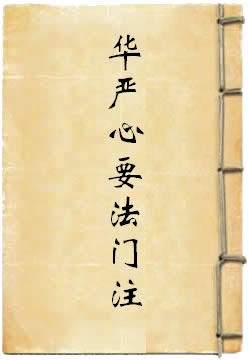 华严心要法门注